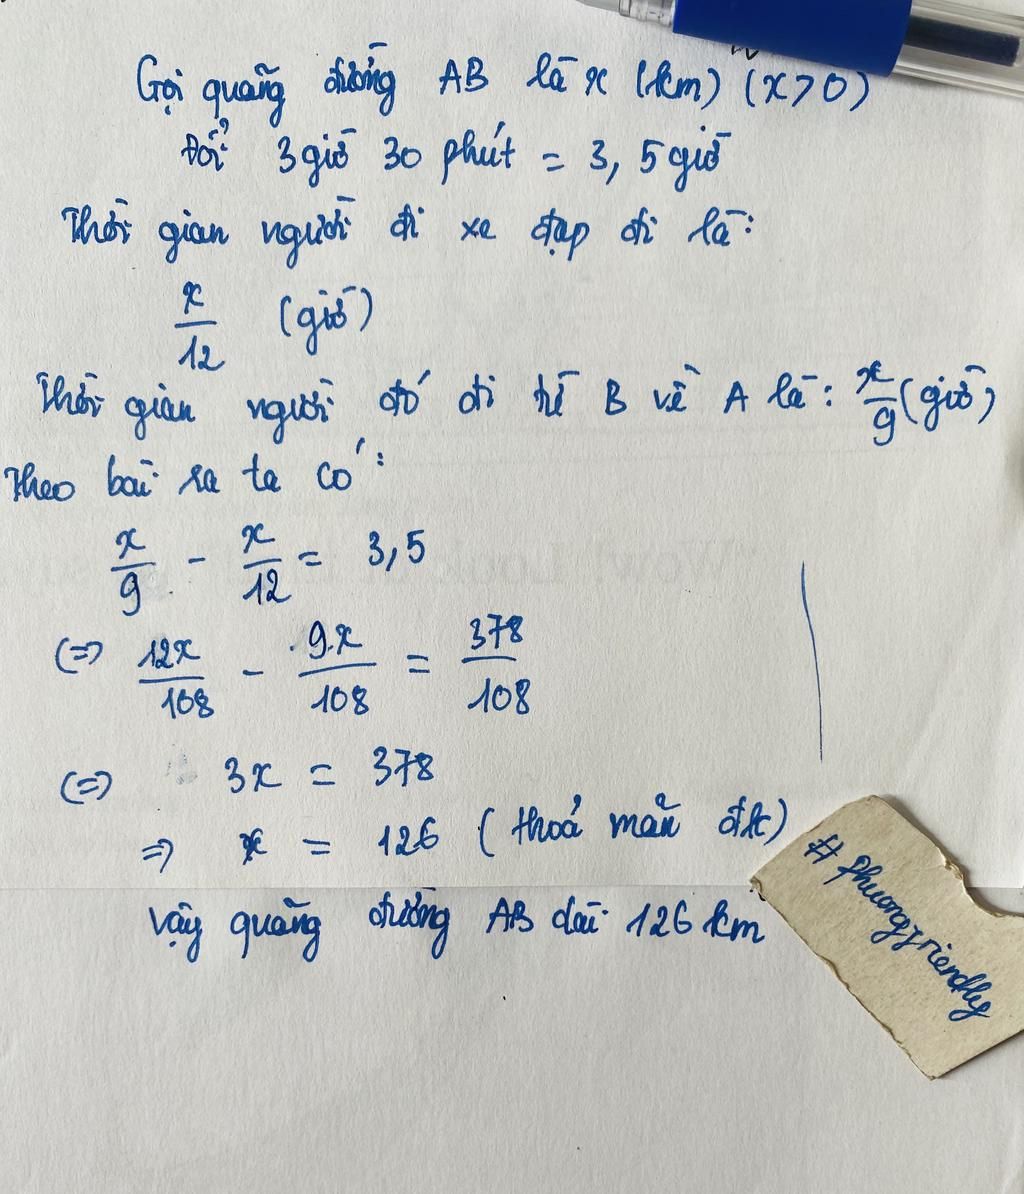 Gọi quãng đường AB là x (km) (x>0)
Đổi 3 giờ 30 phút = 3,5 giờ
Thời gian người đi xe đạp đi là:
x/12 (giờ)
Thời gian người đó đi từ B về A là: x/9 (giờ)
Theo bài ra ta có:
x/9 - x/12 = 3,5
(=) 12x/108 - 9.x/108 = 378/108
(=) 3x = 378
=> x = 126 (thoả mãn đk)
Vậy quãng đường AB dài 126 km
#phuongfriendly